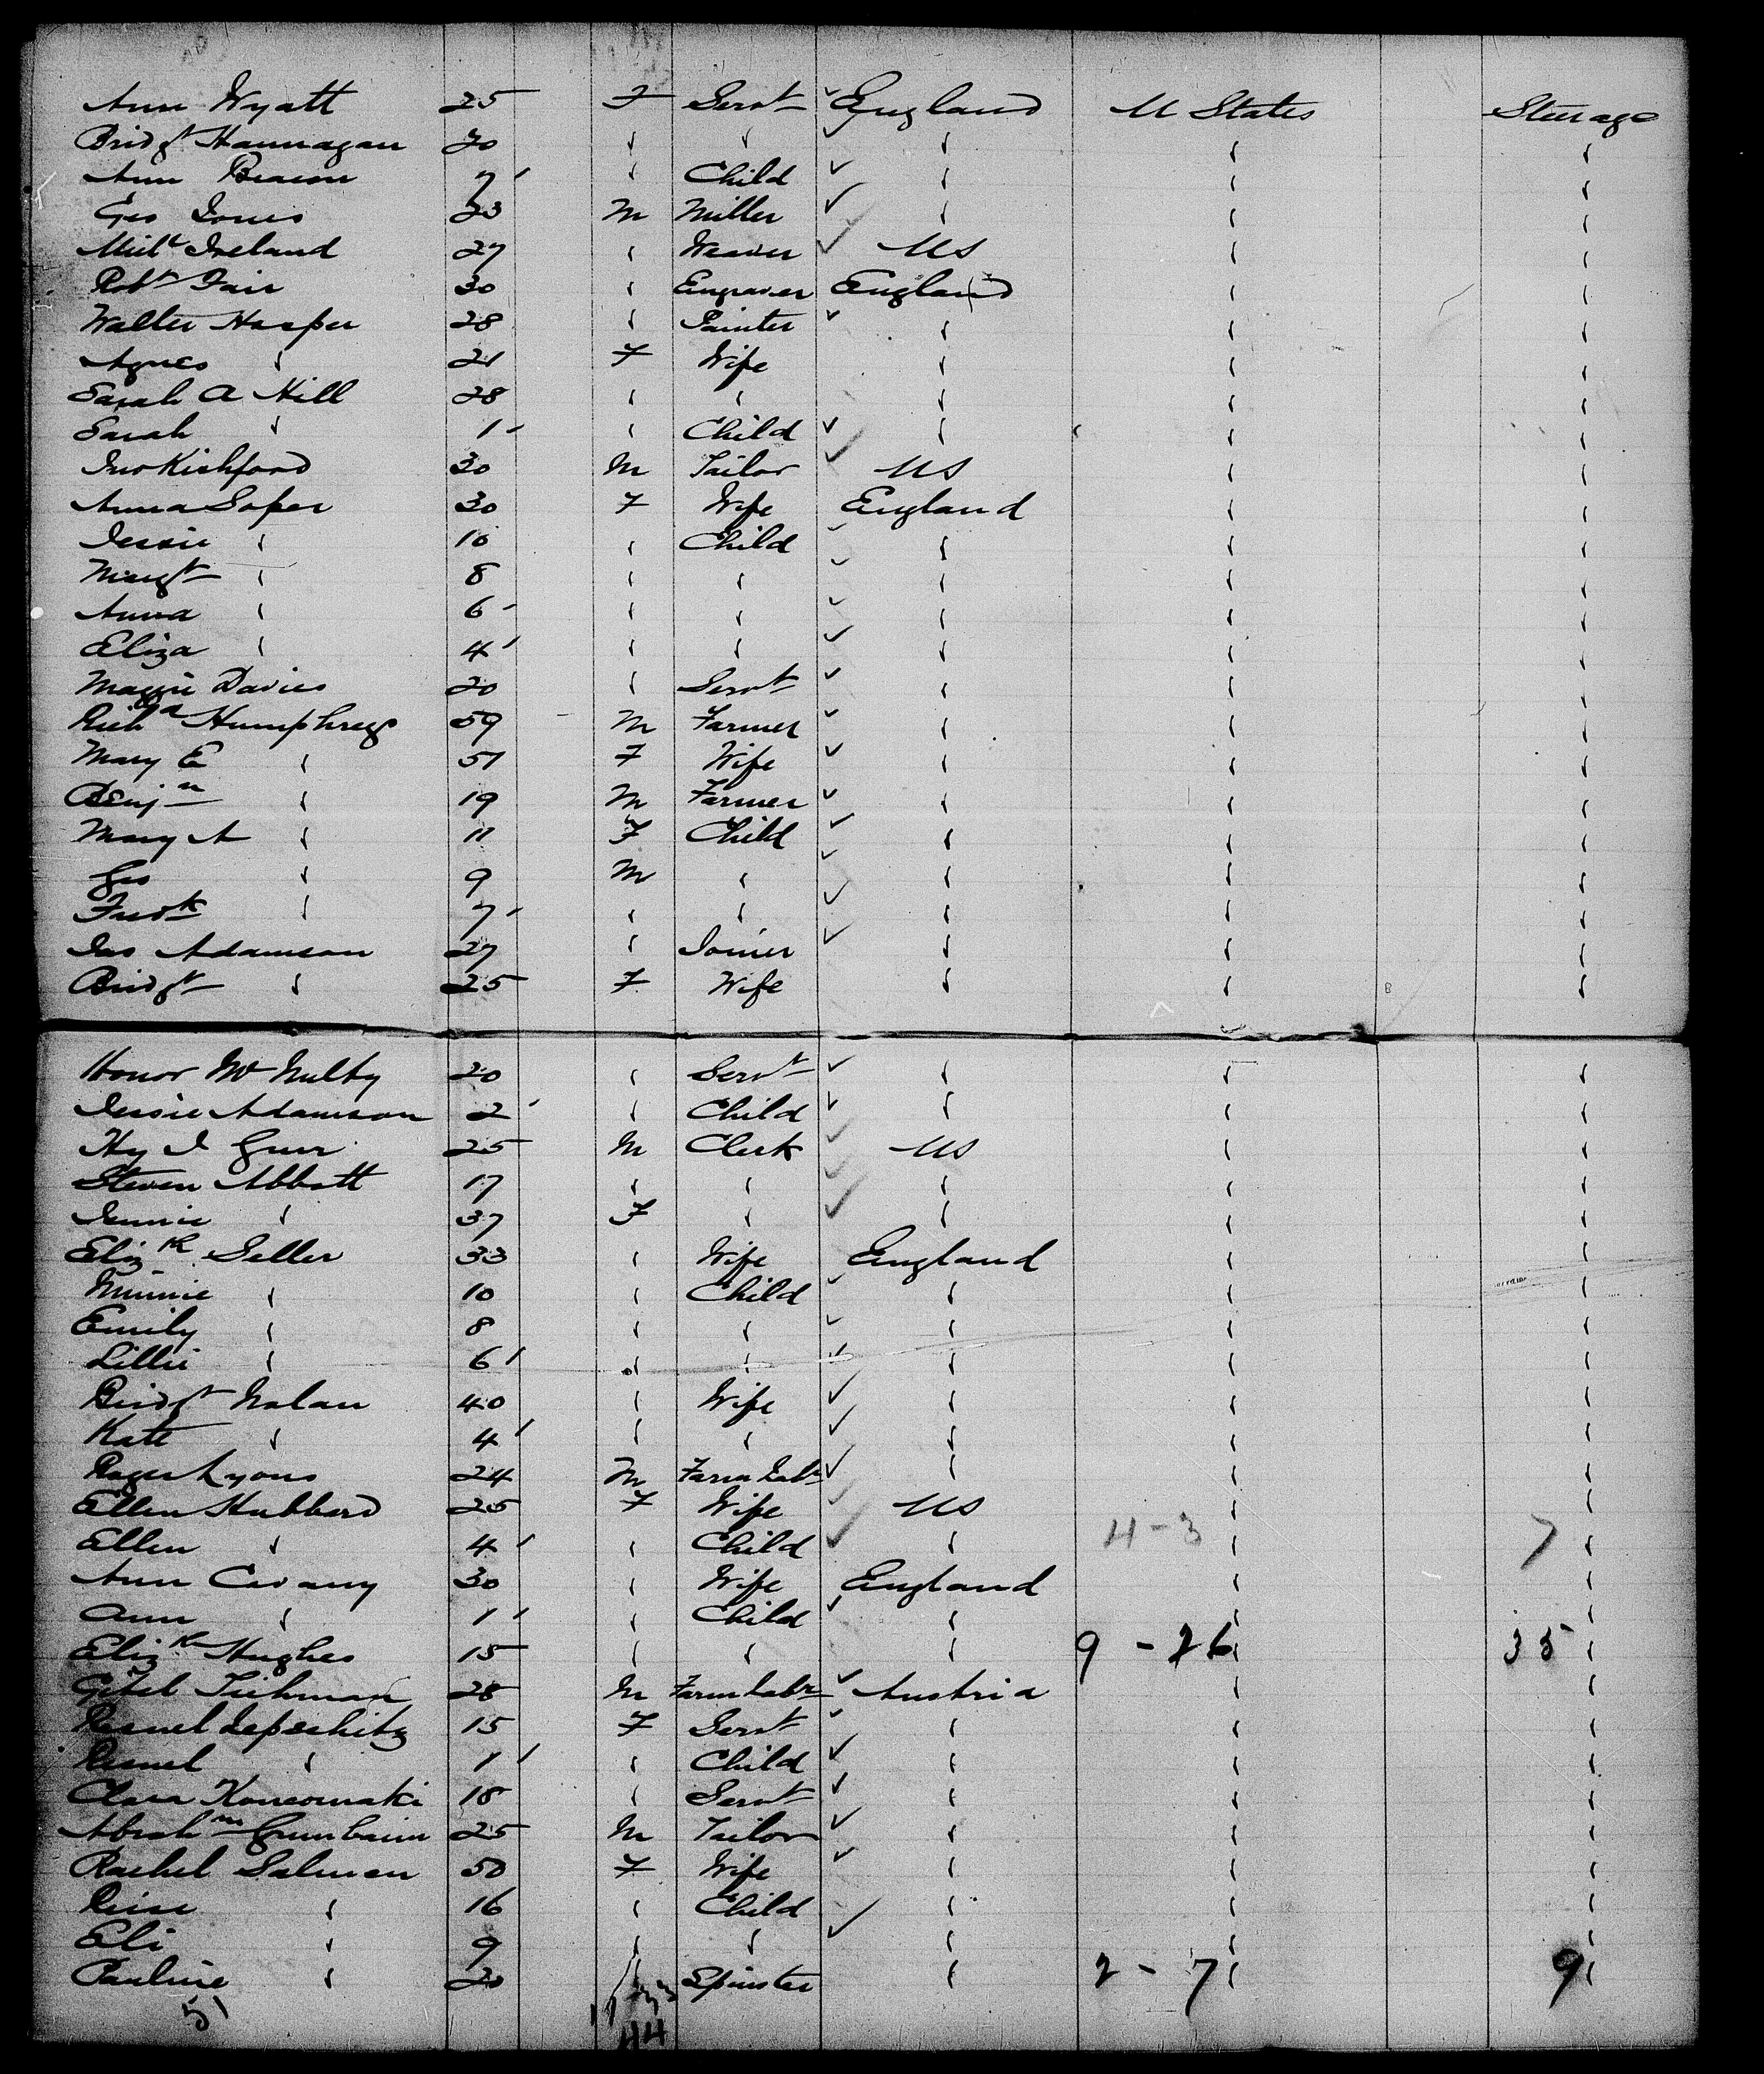 Ann Wyatt 25 F Servt England U States Steerage
Bridgt Hannagan 20 " " " " "
Ann Beacon 7 " Child " " "
Geo Jones 23 M Miller " " "
Michl Ireland 27 " Weaver US " "
Robt Fair 30 " Engraver England " "
Walter Harper 28 " Painter " " "
Agnes " 21 F Wife " " "
Sarah A Hill 28 " " " " "
Sarah " 1 " Child " " "
Jno Kishford 30 M Tailor US " "
Anna Soper 30 F Wife England " "
Jessie " 10 " Child " " "
Margt " 8 " " " " "
Anna " 6 " " " " "
Eliza " 4 " " " " "
Maggie Davies 20 " Servt " " "
Richd Humphreys 59 M Farmer " " "
Mary E " 51 F Wife " " "
Benjn " 19 M Farmer " " "
Mary A " 11 F Child " " "
Geo " 9 M " " " "
Fredk " 7 " " " " "
Jas Adamson 27 " Joiner " " "
Bridgt " 25 F Wife " " "
Honor McNulty 20 " Servt " " "
Jessie Adamson 2 " Child " " "
Hy J Gurr 25 M Clerk US " "
Steven Abbott 17 " " " " "
Jennie " 37 F " " " "
Elizth Seller 33 " Wife England " "
Minnie " 10 " Child " " "
Emily " 8 " " " " "
Lillie " 6 " " " " "
Bridgt Nolan 40 " Wife " " "
Kate " 4 " " " " "
Roger Lyons 24 M Farm Labr " " "
Ellen Hubbard 25 F Wife US " "
Ellen " 4 " Child " 4-3 " 7 "
Ann 30 " Wife England " "
Ann " 1 " Child " " "
Elizth Hughes 15 " " " 9-26 " 35 "
Gitel 28 M Farm Labr Austria " "
15 F Servt " " "
" 1 " Child " " "
Clara 18 " Servt " " "
Abrahm Grunbaum 25 M Tailor " " "
Rachel Salmen 50 F Wife " " "
" 16 " Child " " "
Eli " 9 " " " " "
Pauline " 20 " Spinster " 2-7 " 9 "
51 11 33
44